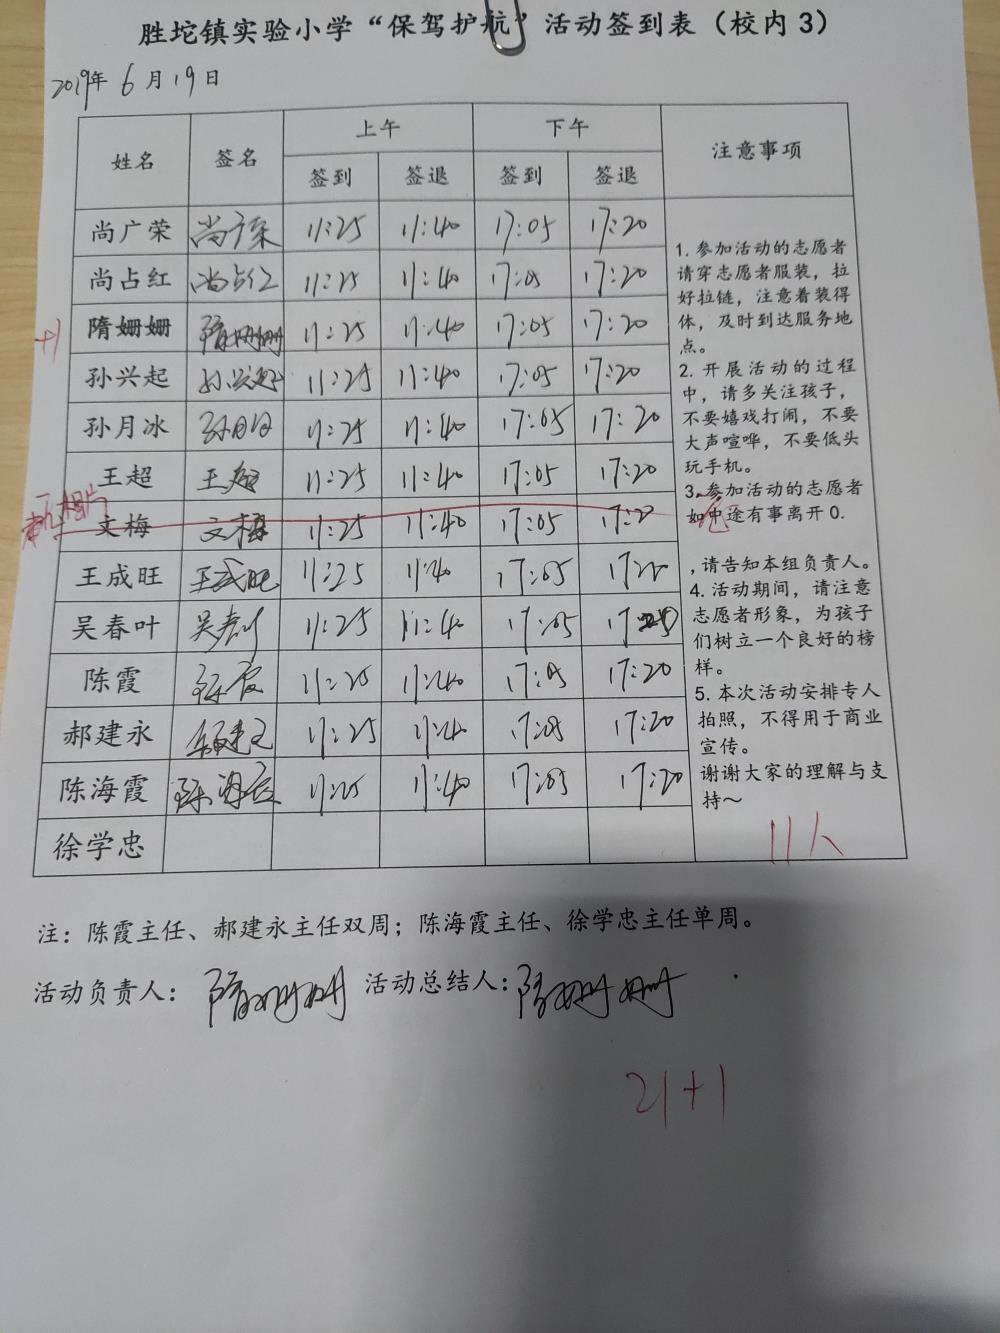 胜坨镇实验小学“保驾护航”活动签到表（校内3）
2019年 6月19日
姓名 签名 上午 下午 注意事项
签到 签退 签到 签退
尚广荣 尚广荣 11:25 11:40 17:05 17:20
尚占红 尚占红 11:25 11:40 17:05 17:20
+1 隋姗姗 隋姗姗 11:25 11:40 17:05 17:20
孙兴起 孙兴起 11:25 11:40 17:05 17:20
孙月冰 孙月冰 11:25 11:40 17:05 17:20
王超 王超 11:25 11:40 17:05 17:20
无相片
文梅 文梅 11:25 11:40 17:05
王成旺 王成旺 11:25 11:40 17:05 17:20
吴春叶 吴春叶 11:25 11:40 17:05
陈霞 陈霞 11:25 11:40 17:05 17:20
郝建永 郝建永 11:25 11:40 17:05 17:20
陈海霞 陈海霞 11:25 11:40 17:05 17:20
徐学忠
1. 参加活动的志愿者
请穿志愿者服装，拉
好拉链，注意着装得
体，及时到达服务地
点。
2. 开展活动的过程
中，请多关注孩子，
不要嬉戏打闹，不要
大声喧哗，不要低头
玩手机。
3. 参加活动的志愿者
如中途有事离开0.
，请告知本组负责人。
4. 活动期间，请注意
志愿者形象，为孩子
们树立一个良好的榜
样。
5. 本次活动安排专人
拍照，不得用于商业
宣传。
谢谢大家的理解与支
持～
11人
注：陈霞主任、郝建永主任双周；陈海霞主任、徐学忠主任单周。
活动负责人：隋姗姗 活动总结人：隋姗姗
21+1